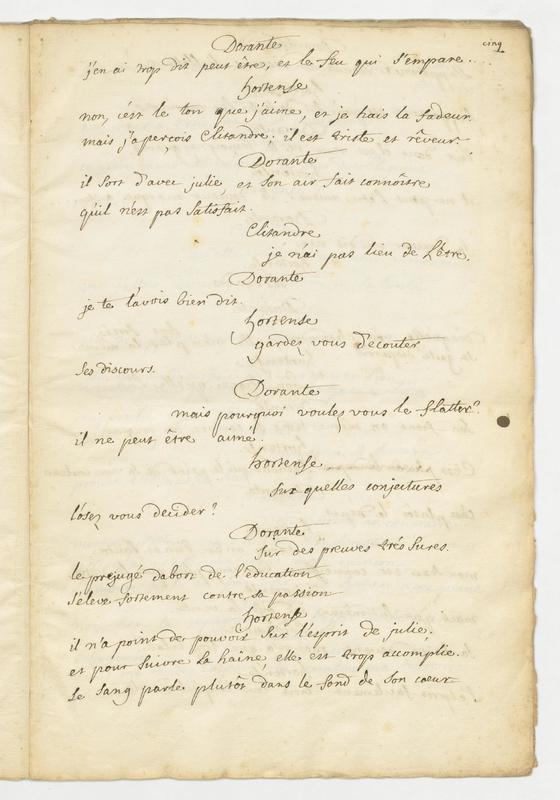 cinq
Dorante
j'en ai trop dit peut être, et le feu qui s'empare...
hortense
non, c'est le ton que j'aime, et je hais la fadeur.
mais j'aperçois Clitandre; il est triste et rêveur.
Dorante
il sort d'avec julie, et son air fait connoître
qu'il n'est pas satisfait.
Clitandre
je n'ai pas lieu de L'être.
Dorante
je te l'avois bien dit.
hortense
gardez vous d'ecouter
ses discours.
Dorante
mais pourquoi voulez vous le flatter?
il ne peut être aimé.
hortense
sur quelles conjectures
l'osez vous decider?
Dorante
sur des preuves trés sures.
le prejugé dabort de l'éducation
s'éleve fortement contre sa passion
hortense
il n'a point de pouvoir sur l'esprit de julie;
et pour suivre la haîne, elle est trop accomplie.
le sang parle plutôt dans le fond de son coeur